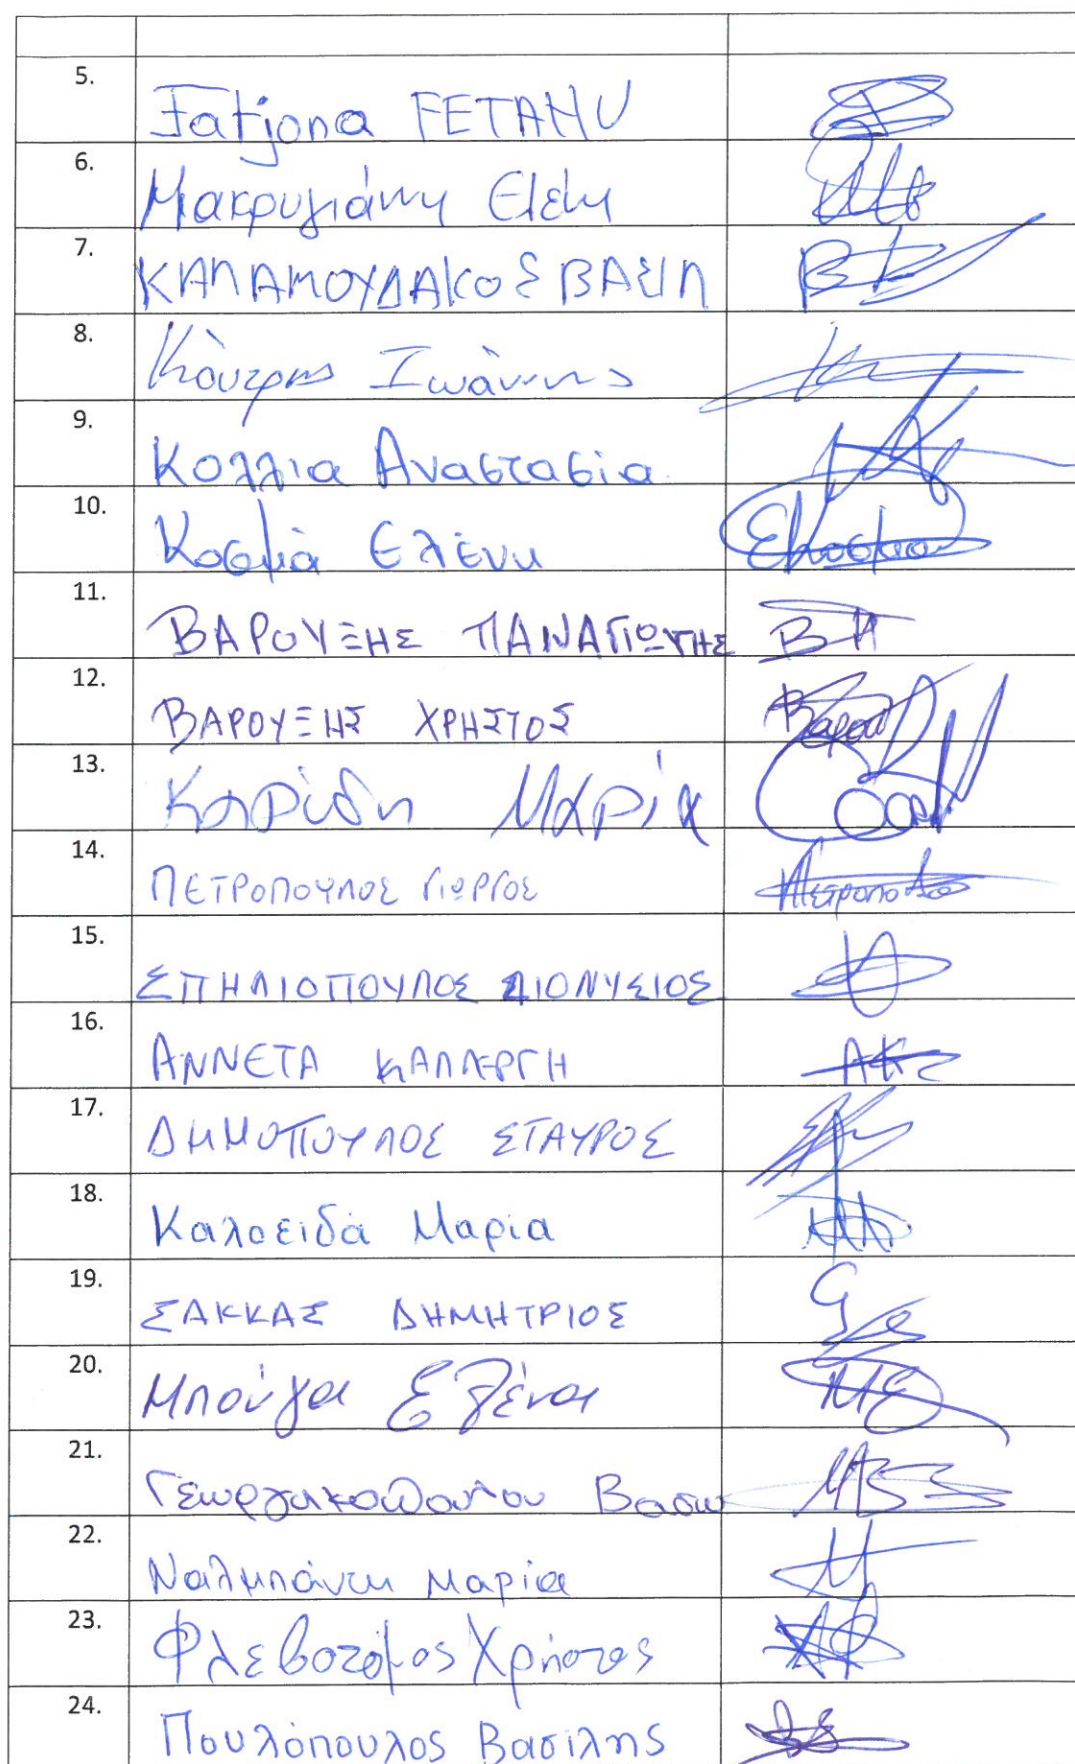 5. Fatjona FETAHU
6. Μακρυγιάννη Ελένη
7. ΚΑΠΑΜΟΥΔΑΚΟΣ ΒΑΣΙΛ
8. Κούτρης Ιωάννης
9. Κολλια Αναστασία
10. Κοσμά Ελένη Εκοσμα
11. ΒΑΡΟΥΞΗΣ ΠΑΝΑΓΙΩΤΗΣ ΒΠ
12. ΒΑΡΟΥΞΗΣ ΧΡΗΣΤΟΣ
13. Καρίδη Μαρία
14. ΠΕΤΡΟΠΟΥΛΟΣ ΓΙΩΡΓΟΣ
15. ΣΠΗΛΙΟΠΟΥΛΟΣ ΔΙΟΝΥΣΙΟΣ
16. ΑΝΝΕΤΑ ΚΑΛΛΕΡΓΗ ΑΚ
17. ΔΗΜΟΠΟΥΛΟΣ ΣΤΑΥΡΟΣ
18. Καλοειδά Μαρία
19. ΣΑΚΚΑΣ ΔΗΜΗΤΡΙΟΣ
20. Μπούγα Ελένα
21. Γεωργακοπούλου Βασω
22. Ναλμπάντη Μαρία
23. Φλεβοτόμος Χρήστος
24. Πουλόπουλος Βασίλης